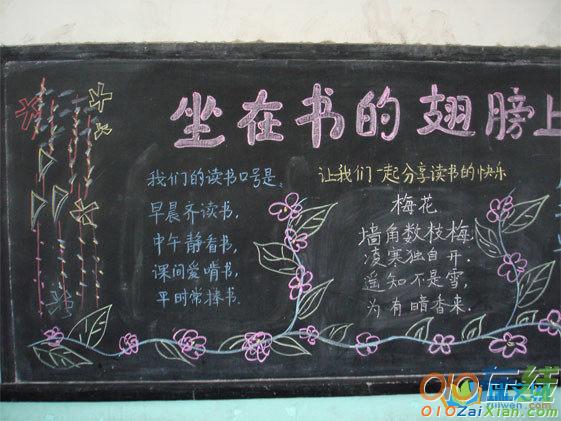 坐在书的翅膀上
我们的读书口号是、
早晨齐读书,
中午静看书,
课间爱啃书,
平时常捧书.
让我们一起分享读书的快乐
梅花
墙角数枝梅,
凌寒独自开.
遥知不是雪,
为有暗香来.
010在线
ruiwen.com
010ZaiXian.com